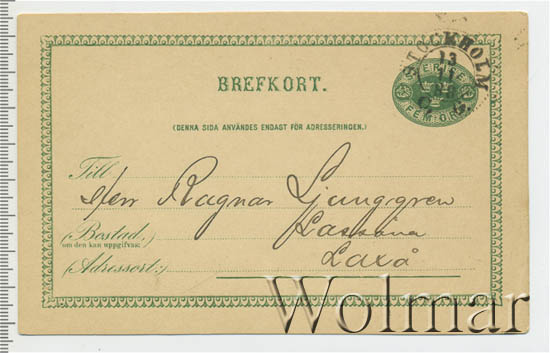 STOCKHOLM
13
11
BREFKORT.
SVERIGE
FEM ÖRE
(DENNA SIDA ANVÄNDES ENDAST FÖR ADRESSERINGEN.)
Till Herr Ragnar Ljunggren
(Bostad:)
om den kan uppgifvas: Lassåna
(Adressort:) Laxå
Wolmar